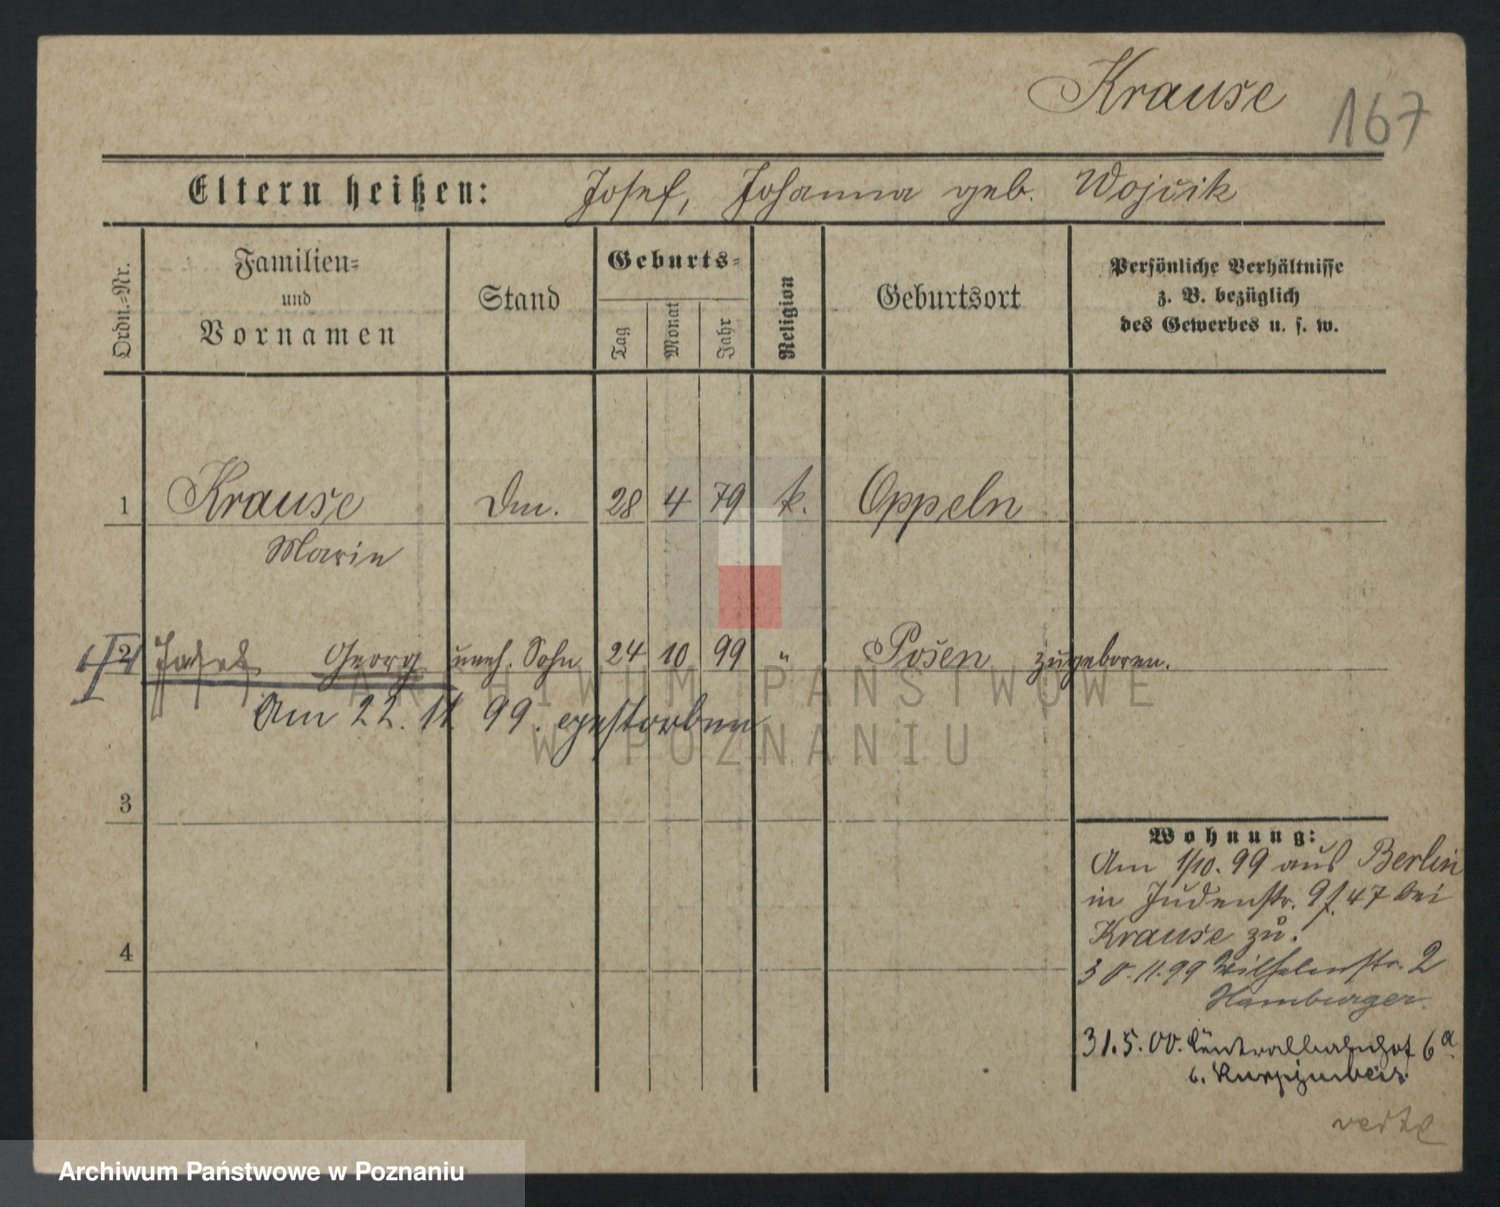 Krause
167
Eltern heißen: Josef, Johanna geb. Wojcik
Ordn.-Nr.
Familien-
und
Vornamen
Stand
Geburts-
Tag
Monat
Jahr
Religion
Geburtsort
Persönliche Verhältnisse
z. B. bezüglich
des Gewerbes u. s. w.
1 Krause Dm. 28 4 79 k. Oppeln
Marie
2 Georg uneh. Sohn 24 10 99 " Posen zugeboren.
Am 22. 11. 99. gestorben
3
4
Wohnung:
Am 1/10. 99 aus Berlin
in Judenstr. 9/ 47 bei
Krause zu.
30. 11. 99 Wilhelmstr. 2
Hamburger.
31. 5. 00. Centralbahnhof 6a
b.
verte
ARCHIWUM PAŃSTWOWE
W POZNANIU
Archiwum Państwowe w Poznaniu